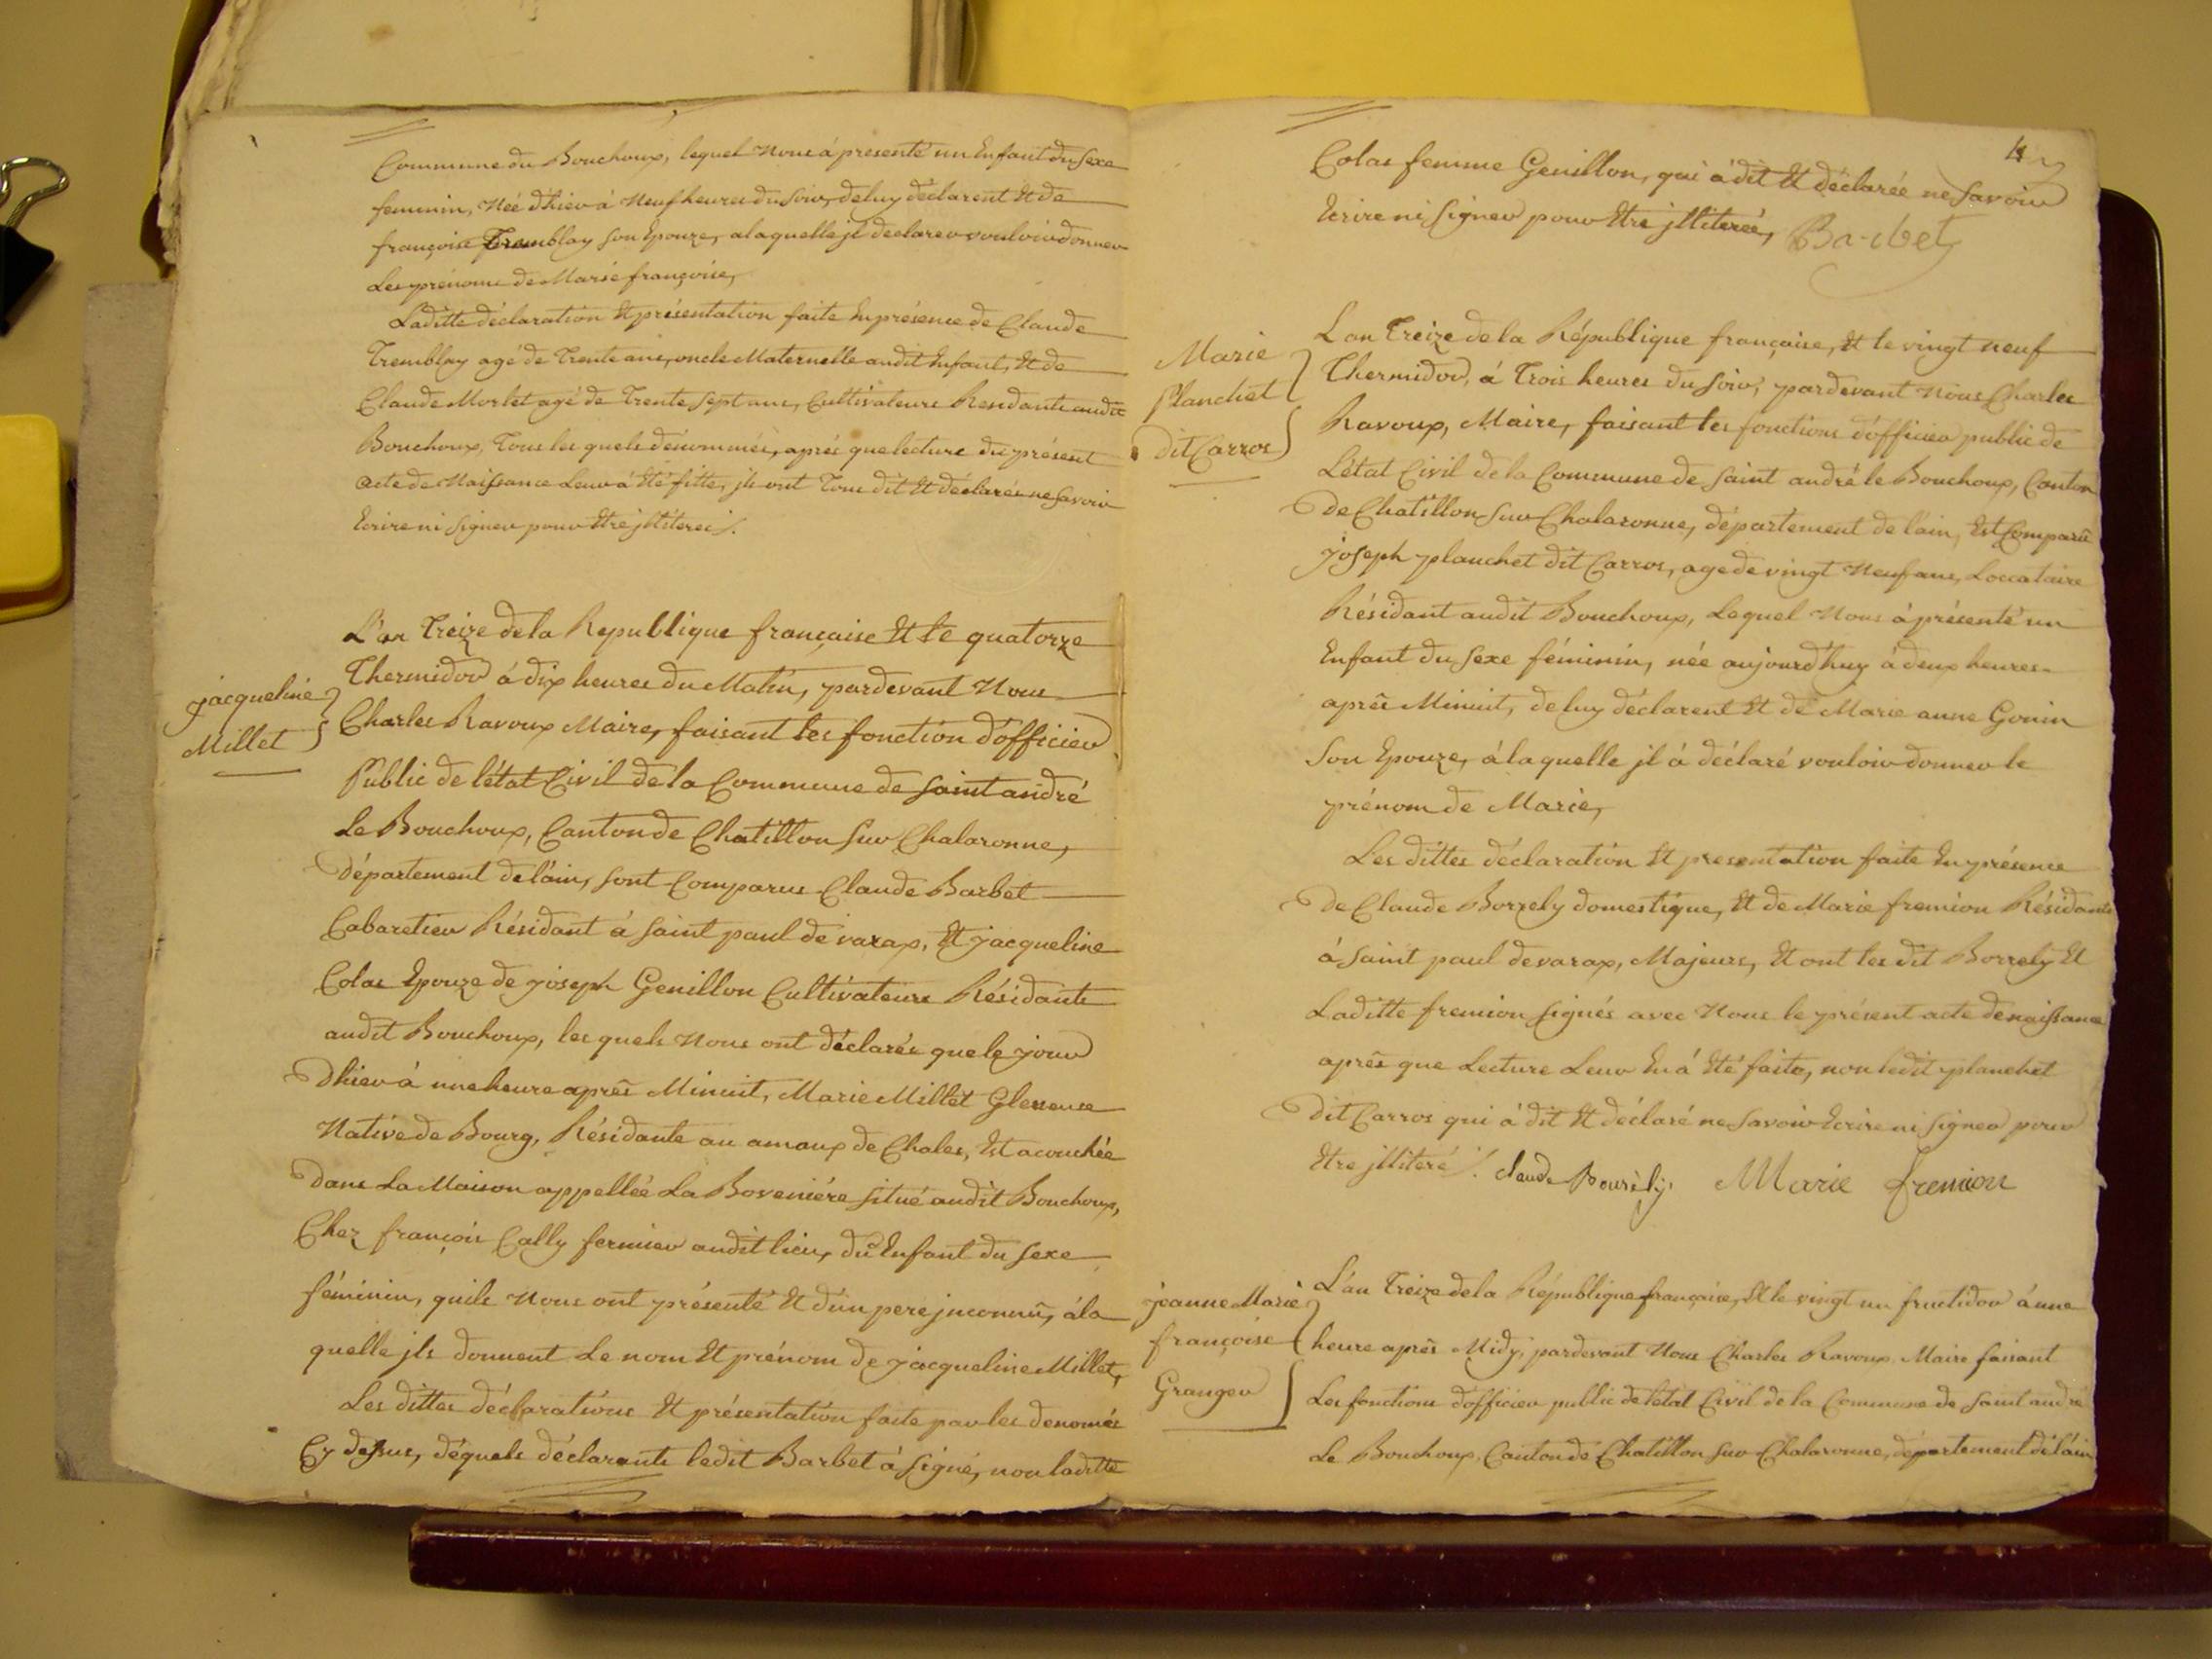 Commune du Bouchoux, lequel nous à presenté un Enfant du Sexe
feminin, Née d'hier à Neuf heures du Soir, de luy déclarent Et de
françoise Tremblay son Epouze, a laquelle jl declarer vouloir donner
Les prénoms de Marie françoise,
Laditte déclaration Et présentation faite En présence de Claude
Tremblay agé de Trente ans, oncle Maternelle audit Enfant, Et de
Claude Morlet agé de Trente Sept ans, Cultivateurs Residants audit
Bouchoux, Tous les quels dénommés, aprés que lecture du présent
acte de Naissance Leur à Eté fitte, jls ont Tous dit Et déclarés ne Savoir
Ecrire ni Signer pour Etre jlliterés /.
jacqueline
Millet
L'an Treize de la Republique française Et le quatorze
Thermidor à dix heures du Matin, pardevant Nous
Charles Ravoux Maire, faisant les fonction d'officier
Public de l'état Civil de la Commune de Saint andré
Le Bouchoux, Canton de Chatillon Sur Chalaronne,
Département de l'ain, sont Comparus Claude Barbet
Cabaretier Résidant à Saint paul de varax, Et jacqueline
Colas Epouze de joseph Genillon Cultivateurs Résidants
audit Bouchoux, les quels Nous ont déclarés que le jour
Dhier à une heure aprês Minuit, Marie Millet Gleneuse
Native de Bourg, Résidante au amaux de Chales, Est acouchée
Dans La Maison appellée La Boveniére situé audit Bouchoux,
Chez françois Cally fermier audit lieu, du Enfant du Sexe
féminin, quils Nous ont présenté Et d'un pere jnconnû, à la
quelle jls donnent Le nom Et prénom de jacqueline Millet,
Les dittes déclarations Et présentation faite par les denomés
Cy dessus, déquels déclarants ledit Barbet à Signé, non laditte
4
Colas femme Genillon, qui à dit Et déclarée ne Savoir
Ecrire ni Signer pour Etre jlliterée, Barbet
Marie
Planchet
dit Carros
L'an Treize de la République française, Et le vingt neuf
Thermidor, à Trois heures du soir, pardevant Nous Charles
Ravoux, Maire, faisant les fonctions d'officier public de
L'état Civil de la Commune de Saint andré le Bouchoux, Canton
De Chatillon Sur Chalaronne, département de l'ain, Est Comparû
joseph planchet dit Carros, age de vingt Neuf ans, Loccataire
Résidant audit Bouchoux, Lequel Nous à présenté un
Enfant du Sexe féminin, née aujourd'huy à deux heures
aprês Minuit, de luy déclarent Et de Marie anne Gonin
Son Epouze, à laquelle jl à déclaré vouloir donner le
prénom de Marie,
Les dittes déclaration Et presentation faite En présence
De Claude Borrely domestique, Et de Marie fremion Résidants
à Saint paul de varax, Majeurs, Et ont les dit Borrely Et
Laditte fremion Signés avec Nous le présent acte de naissance
aprês que Lecture Leur En à Eté faite, non ledit planchet
Dit Carros qui à dit Et déclaré ne Savoir Ecrire ni Signer pour
Etre jlliteré /. claude Bourély. Marie fremion
jeanne Marie
françoise
Granger
L'an Treize de la République française, Et le vingt un fructidor à une
heure aprês Midy, pardevant Nous Charles Ravoux Maire faisant
Les fonctions d'officier public de l'état Civil de la Commune de Saint andré
Le Bouchoux, Canton de Chatillon Sur Chalaronne, département de l'ain